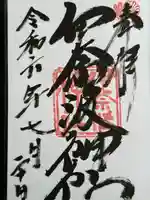 奉拝
伊奈波神社
令和六年七月二十日